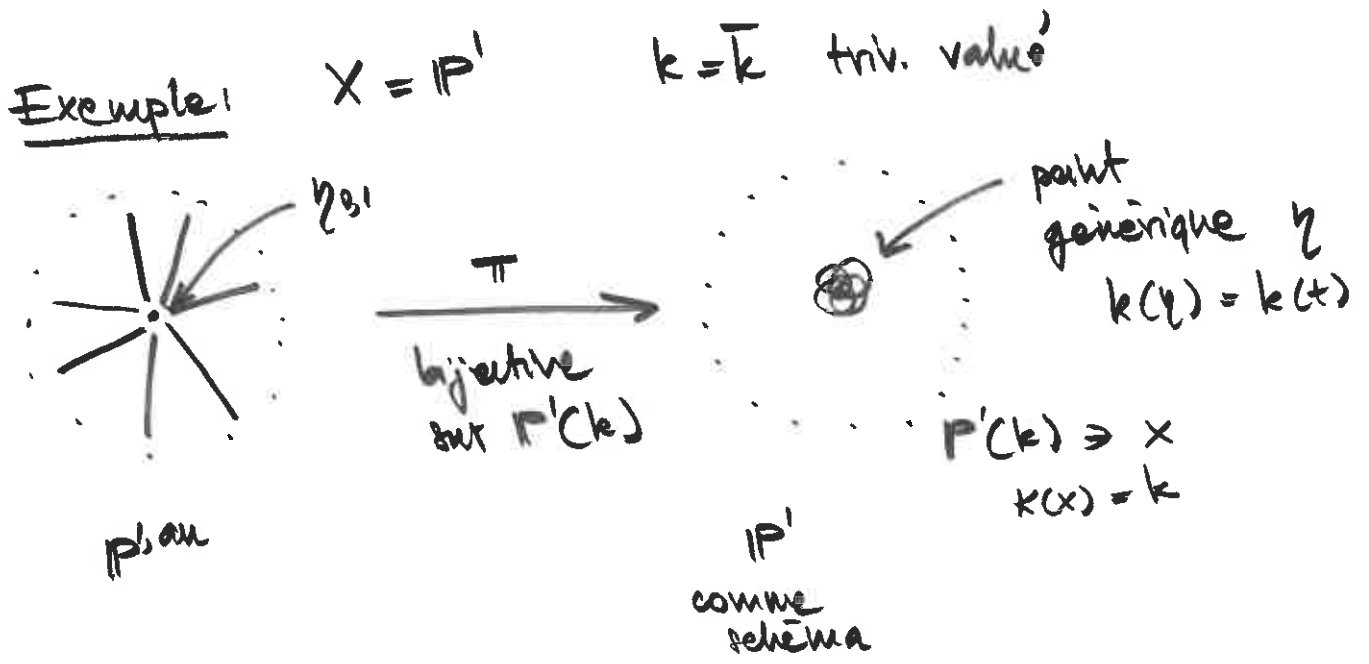 Exemple: X = ℙ¹ k = k̄ triv. valué
η₀,₁
π
bijective
sur ℙ¹(k)
point
générique η
k(η) = k(t)
ℙ¹(k) ∋ x
κ(x) = k
ℙ¹,an
ℙ¹
comme
schéma